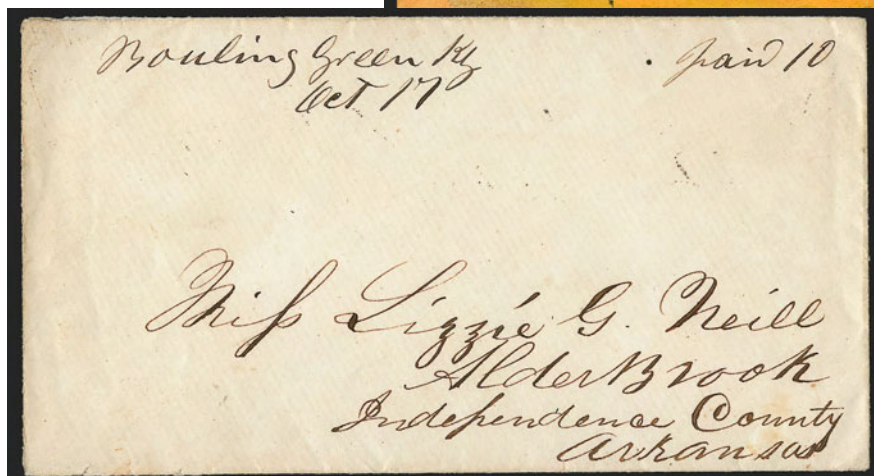 Bowling Green Ky paid 10
Oct 17
Miss Lizzie G. Neill
Alder Brook
Independence County
Arkansas